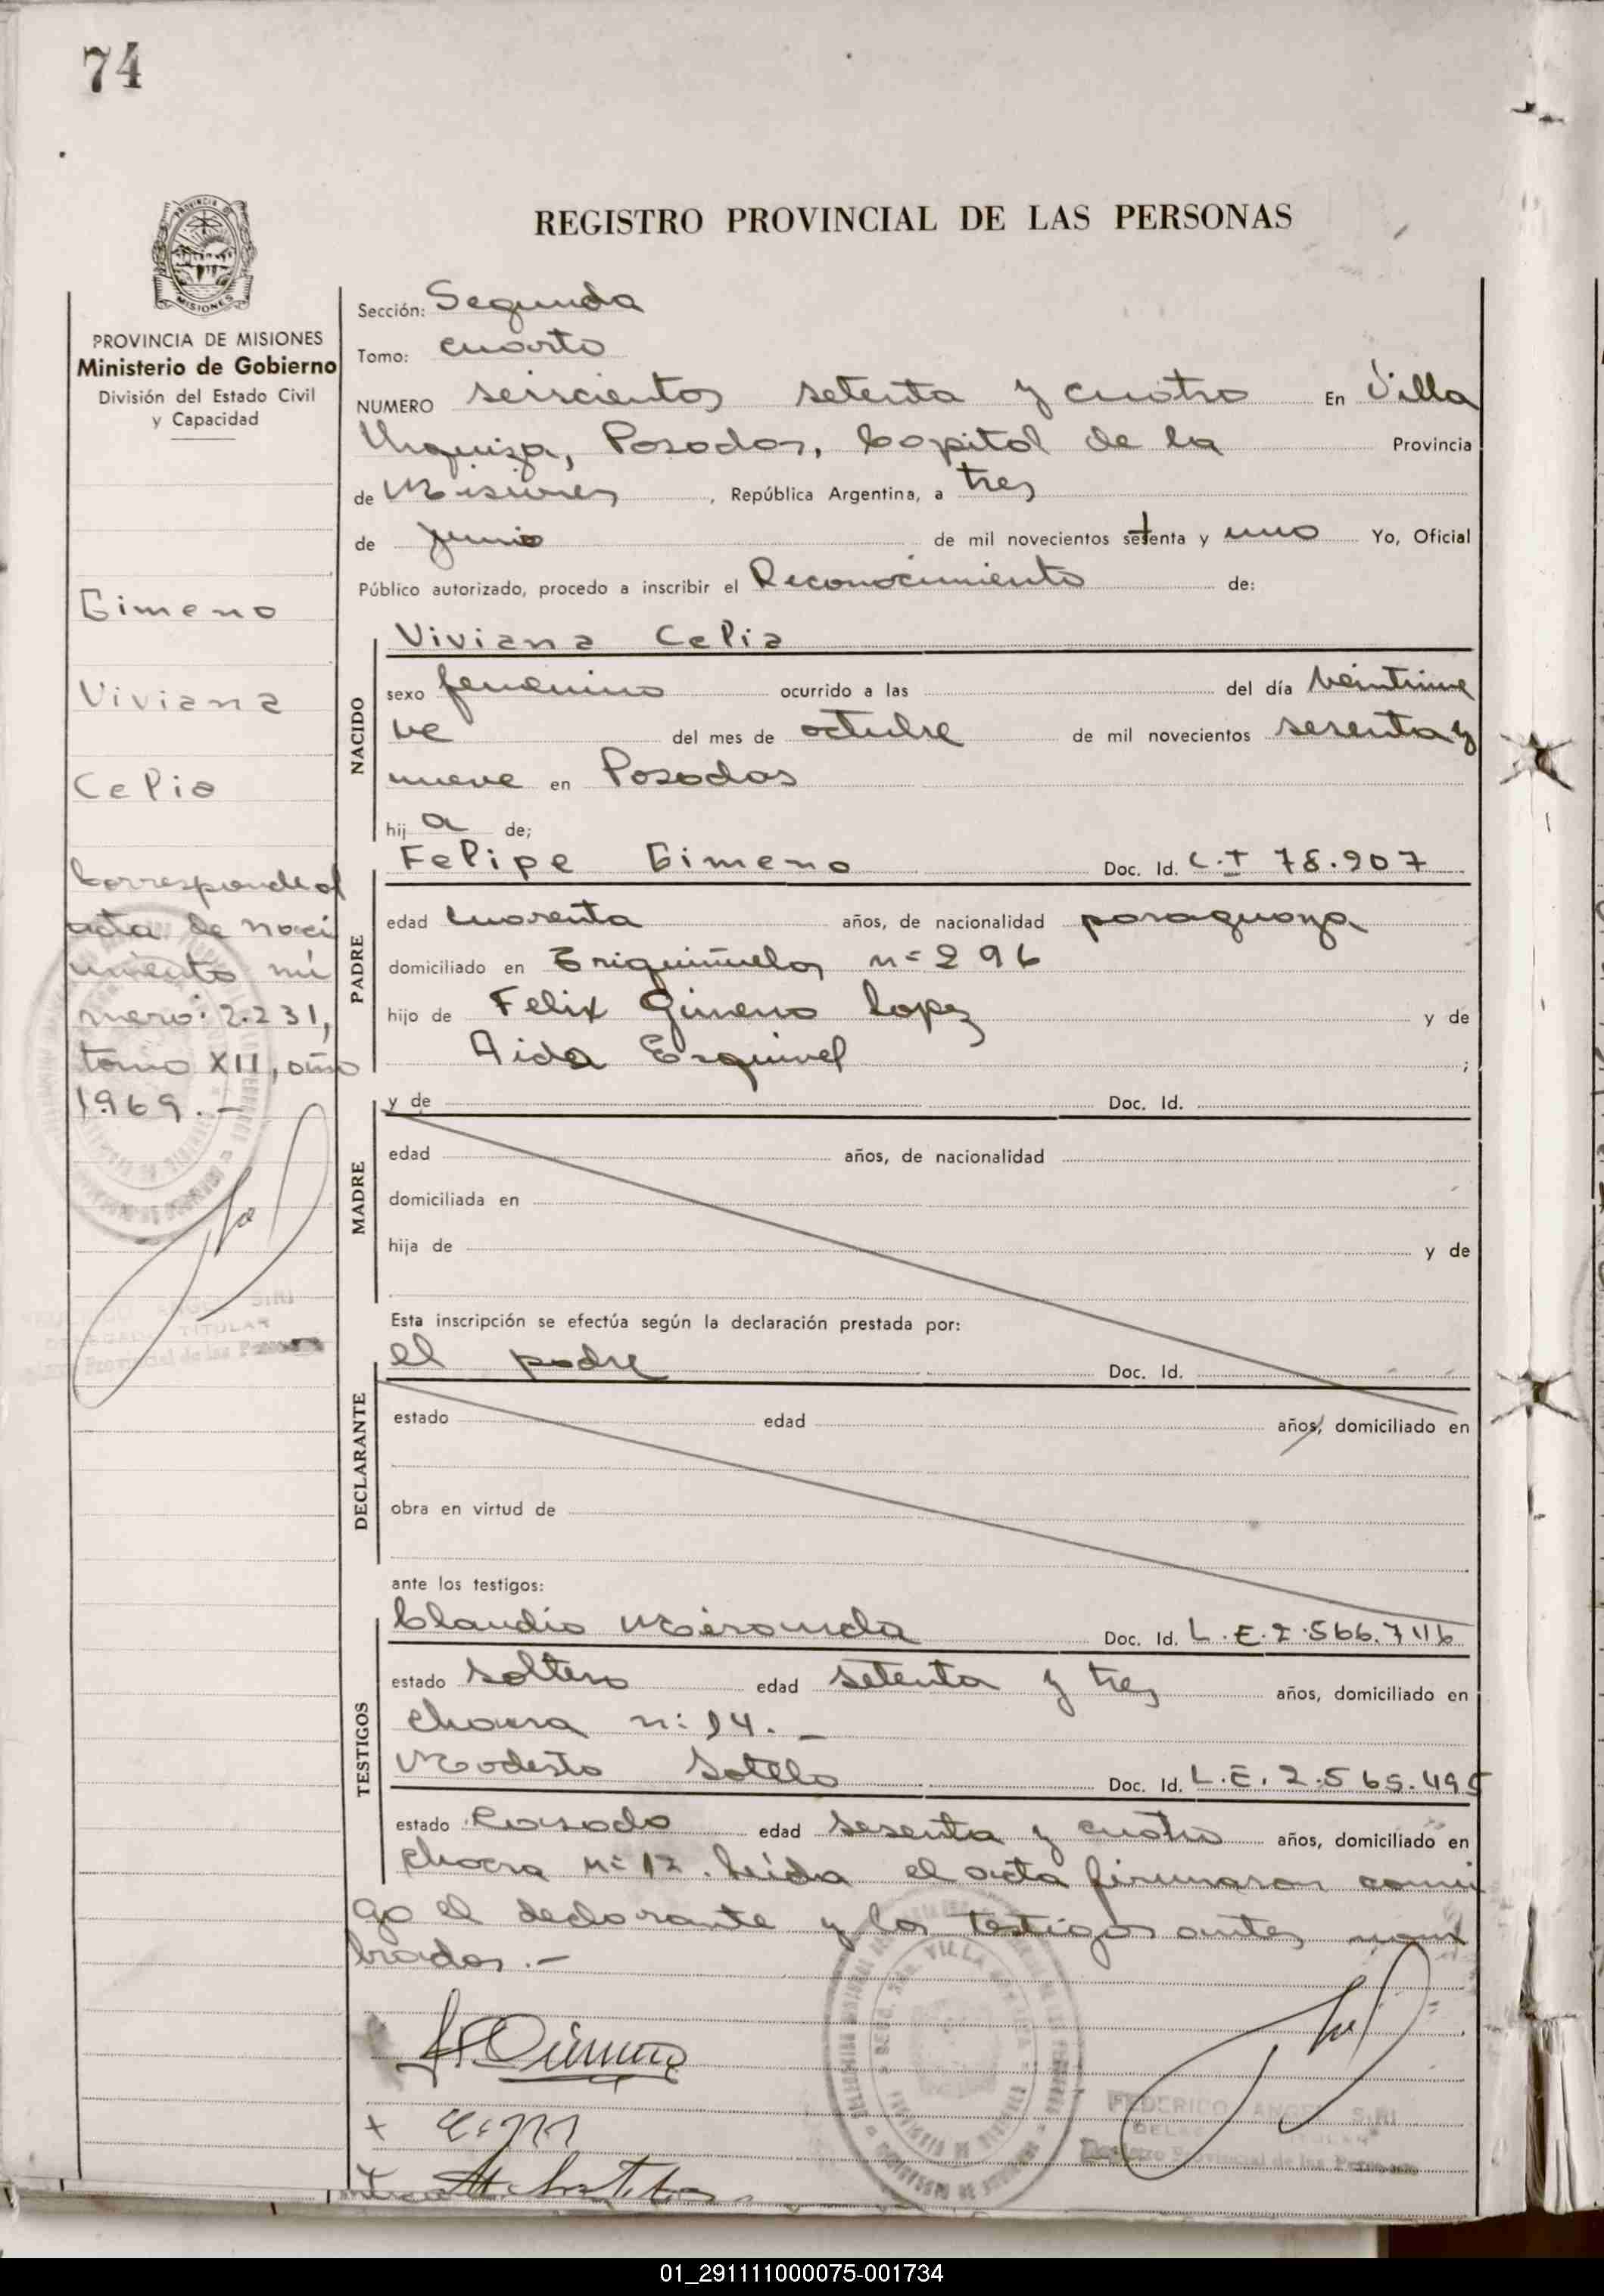 74
PROVINCIA DE
MISIONES
REGISTRO PROVINCIAL DE LAS PERSONAS
PROVINCIA DE MISIONES
Ministerio de Gobierno
División del Estado Civil
y Capacidad
Gimeno
Viviana
Celia
Corresponde al
acta de naci
miento nú
mero: 2.231,
tomo XII, año
1969.-
Sección: Segunda
Tomo: cuarto
NUMERO seiscientos setenta y cuatro En Villa
Urquiza, Posadas, Capital de la Provincia
de Misiones, República Argentina, a tres
de junio de mil novecientos setenta y uno Yo, Oficial
Público autorizado, procedo a inscribir el Reconocimiento de:
NACIDO
Viviana Celia
sexo femenino ocurrido a las del día veintinue
ve del mes de octubre de mil novecientos sesenta y
nueve en Posadas
hij a de;
PADRE
Felipe Gimeno Doc. Id. C.I 78.907
edad cuarenta años, de nacionalidad paraguaya
domiciliado en n= 296
hijo de Felix Gimeno Lopez y de
Aida Esquivel ;
MADRE
y de Doc. Id.
edad años, de nacionalidad
domiciliada en
hija de y de
Esta inscripción se efectúa según la declaración prestada por:
DECLARANTE
el padre Doc. Id.
estado edad años, domiciliado en
obra en virtud de
ante los testigos:
TESTIGOS
Claudio Miranda Doc. Id. L.E.2.566.7
estado soltero edad setenta y tres años, domiciliado en
chacra n: 14.-
Modesto Sotelo Doc. Id. L.E. 2.565.495
estado casado edad sesenta y cuatro años, domiciliado en
chacra n= 12. Leída el acta firmaron conmi
go el declarante y los testigos antes nom
brados.-
VILLA URQUIZA
PROVINCIA DE MISIONES
FEDERICO ANGEL SIRI
DELEGADO TITULAR
Registro Provincial de las Personas
01_291111000075-001734